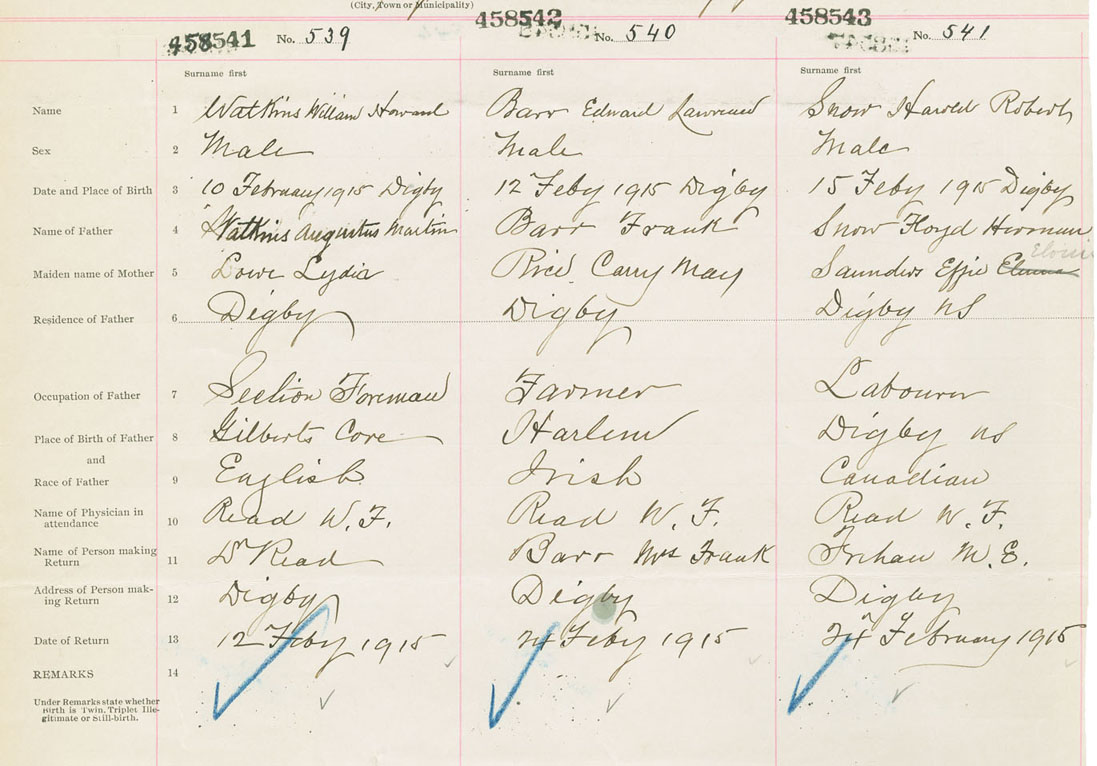 (City, Town or Municipality)
458541 No. 539 458542 No. 540 458543 No. 541
Surname first Surname first Surname first
Name 1 Watkins William Howard Barr Edward Lawrence Snow Harold Robert
Sex 2 Male Male Male
Date and Place of Birth 3 10 February 1915 Digby 12 Feby 1915 Digby 15 Feby 1915 Digby
Name of Father 4 Watkins Augustus Martin Barr Frank Snow Floyd Herman
Maiden name of Mother 5 Lowe Lydia Rice Carry May Saunders Effie
Residence of Father 6 Digby Digby Digby NS
Occupation of Father 7 Section Foreman Farmer Labourer
Place of Birth of Father 8 Gilberts Cove Harlem Digby NS
and
Race of Father 9 English Irish Canadian
Name of Physician in
attendance 10 Read W. F. Read W. F. Read W. F.
Name of Person making
Return 11 Dr Read Barr Mrs Frank M. E.
Address of Person mak-
ing Return 12 Digby Digby Digby
Date of Return 13 12 Feby 1915 24 Feby 1915 24 February 1915
REMARKS 14
Under Remarks state whether
Birth is Twin, Triplet Ille-
gitimate or Still-birth.